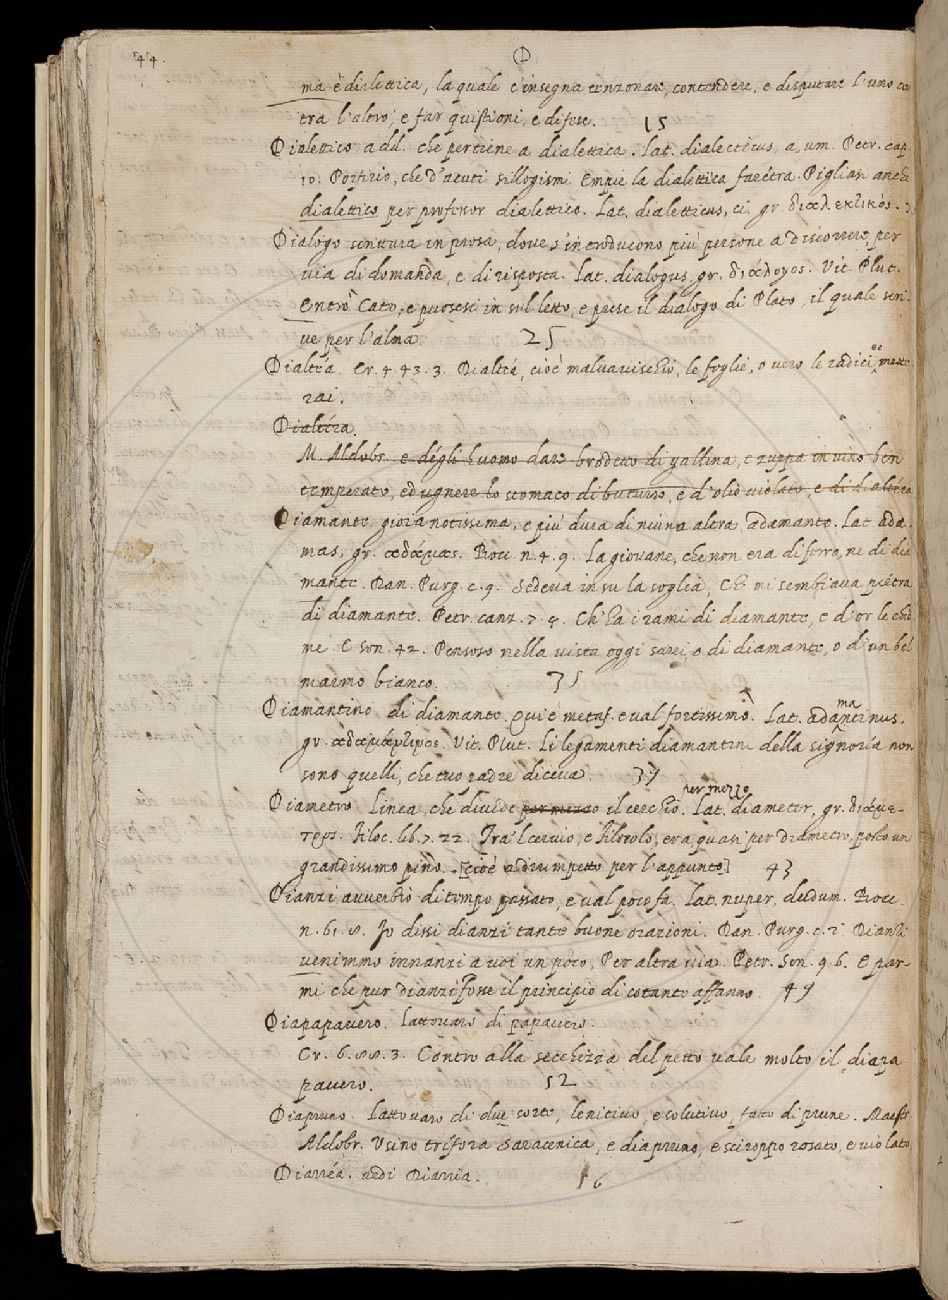 44
D
ma è dialettica, la quale c'insegna tenzonare, contendere, e disputare l'uno con
tra l'altro, e far quistioni, e difese. 15
Dialettico add. che pertiene a dialettica. Lat. dialecticus, a, um. Petr. cap.
10. Porfirio, che d'acuti sillogismi Empiè la dialettica farétra. Pigliasi anche
dialettico per professor dialettico. Lat. dialetticus, ci. gr. διαλεκτικός.
Dialogo scrittura in prosa, dove s'introducono più persone a discorrere, per
via di domanda, e di risposta. Lat. dialogus, gr. διάλογος. Vit. Plut.
Entrò Cato, e puosesi in sul letto, e prese il dialogo di Plato, il quale scri-
ve per l'alma. 25
Dialtéa. Cr. 4. 43. 3. Dialtéa, cioè malvavischio, le foglie, o vero le radici ne mette-
rai.
Dialtéa.
M. Aldobr. e dégli huomo dare brodetto di gallina, e zuppa in vino ben
temperato, ed ugnere lo stomaco di butirro, e d'olio violato, e di dialtéa
Diamante gioia notissima, e più dura di niuna altra adamante. Lat. ada-
mas, gr. ἀδάμας. Bocc. n. 4. 9. La giovane, che non era di ferro, ne di dia
mante. Dan. Purg. c. 9. Sedeva in su la soglia, Ch mi sembiava piétra
di diamante. Petr. canz. 7. 5. Ch' ha i rami di diamante, e d'or le chio
me. E son. 42. Pensoso nella vista oggi sarei, o di diamante, o d'un bel
marmo bianco. 35
Diamantino di diamante. Qui è metaf. e val fortissimo. Lat. adamantinus.
gr. ἀδαμάντινος. Vit. Plut. Li legamenti diamantini della signoria non
sono quelli, che tuo padre diceva. 39
Diametro Linea, che divide per mezzo il cerchio per mezzo. Lat. diameter, gr. διάμε-
τρος. Filoc. lib. 7. 22. Tra'l cervio, e Filocolo, era quasi per diametro, posto un
grandissimo pino. [cioè adirimpetto per l'appunto] 43
Dianzi avverbio di tempo passato, e val poco fa. Lat. nuper, dudum. Bocc.
n. 61. 8. Io dissi dianzi tante buone orazioni. Dan. Purg. c. 2. Dianzi
venimmo innanzi a voi un poco, Per altra via. Petr. Son. 96. E par-
mi che pur dianzi Fosse il principio di cotanto affanno. 49
Diapapavero. Lattovaro di papavero.
Cr. 6. 88. 3. Contro alla secchezza del petto vale molto il diapa
pavero. 52
Diapruno. Lattovaro di due sorte, lenitivo, e solutivo, fatto di prune. Maest.
Aldobr. Usino trifera saracenica, e diapruno, e sciroppo rosato, e violato
Diarréa. vedi Diarria. 56